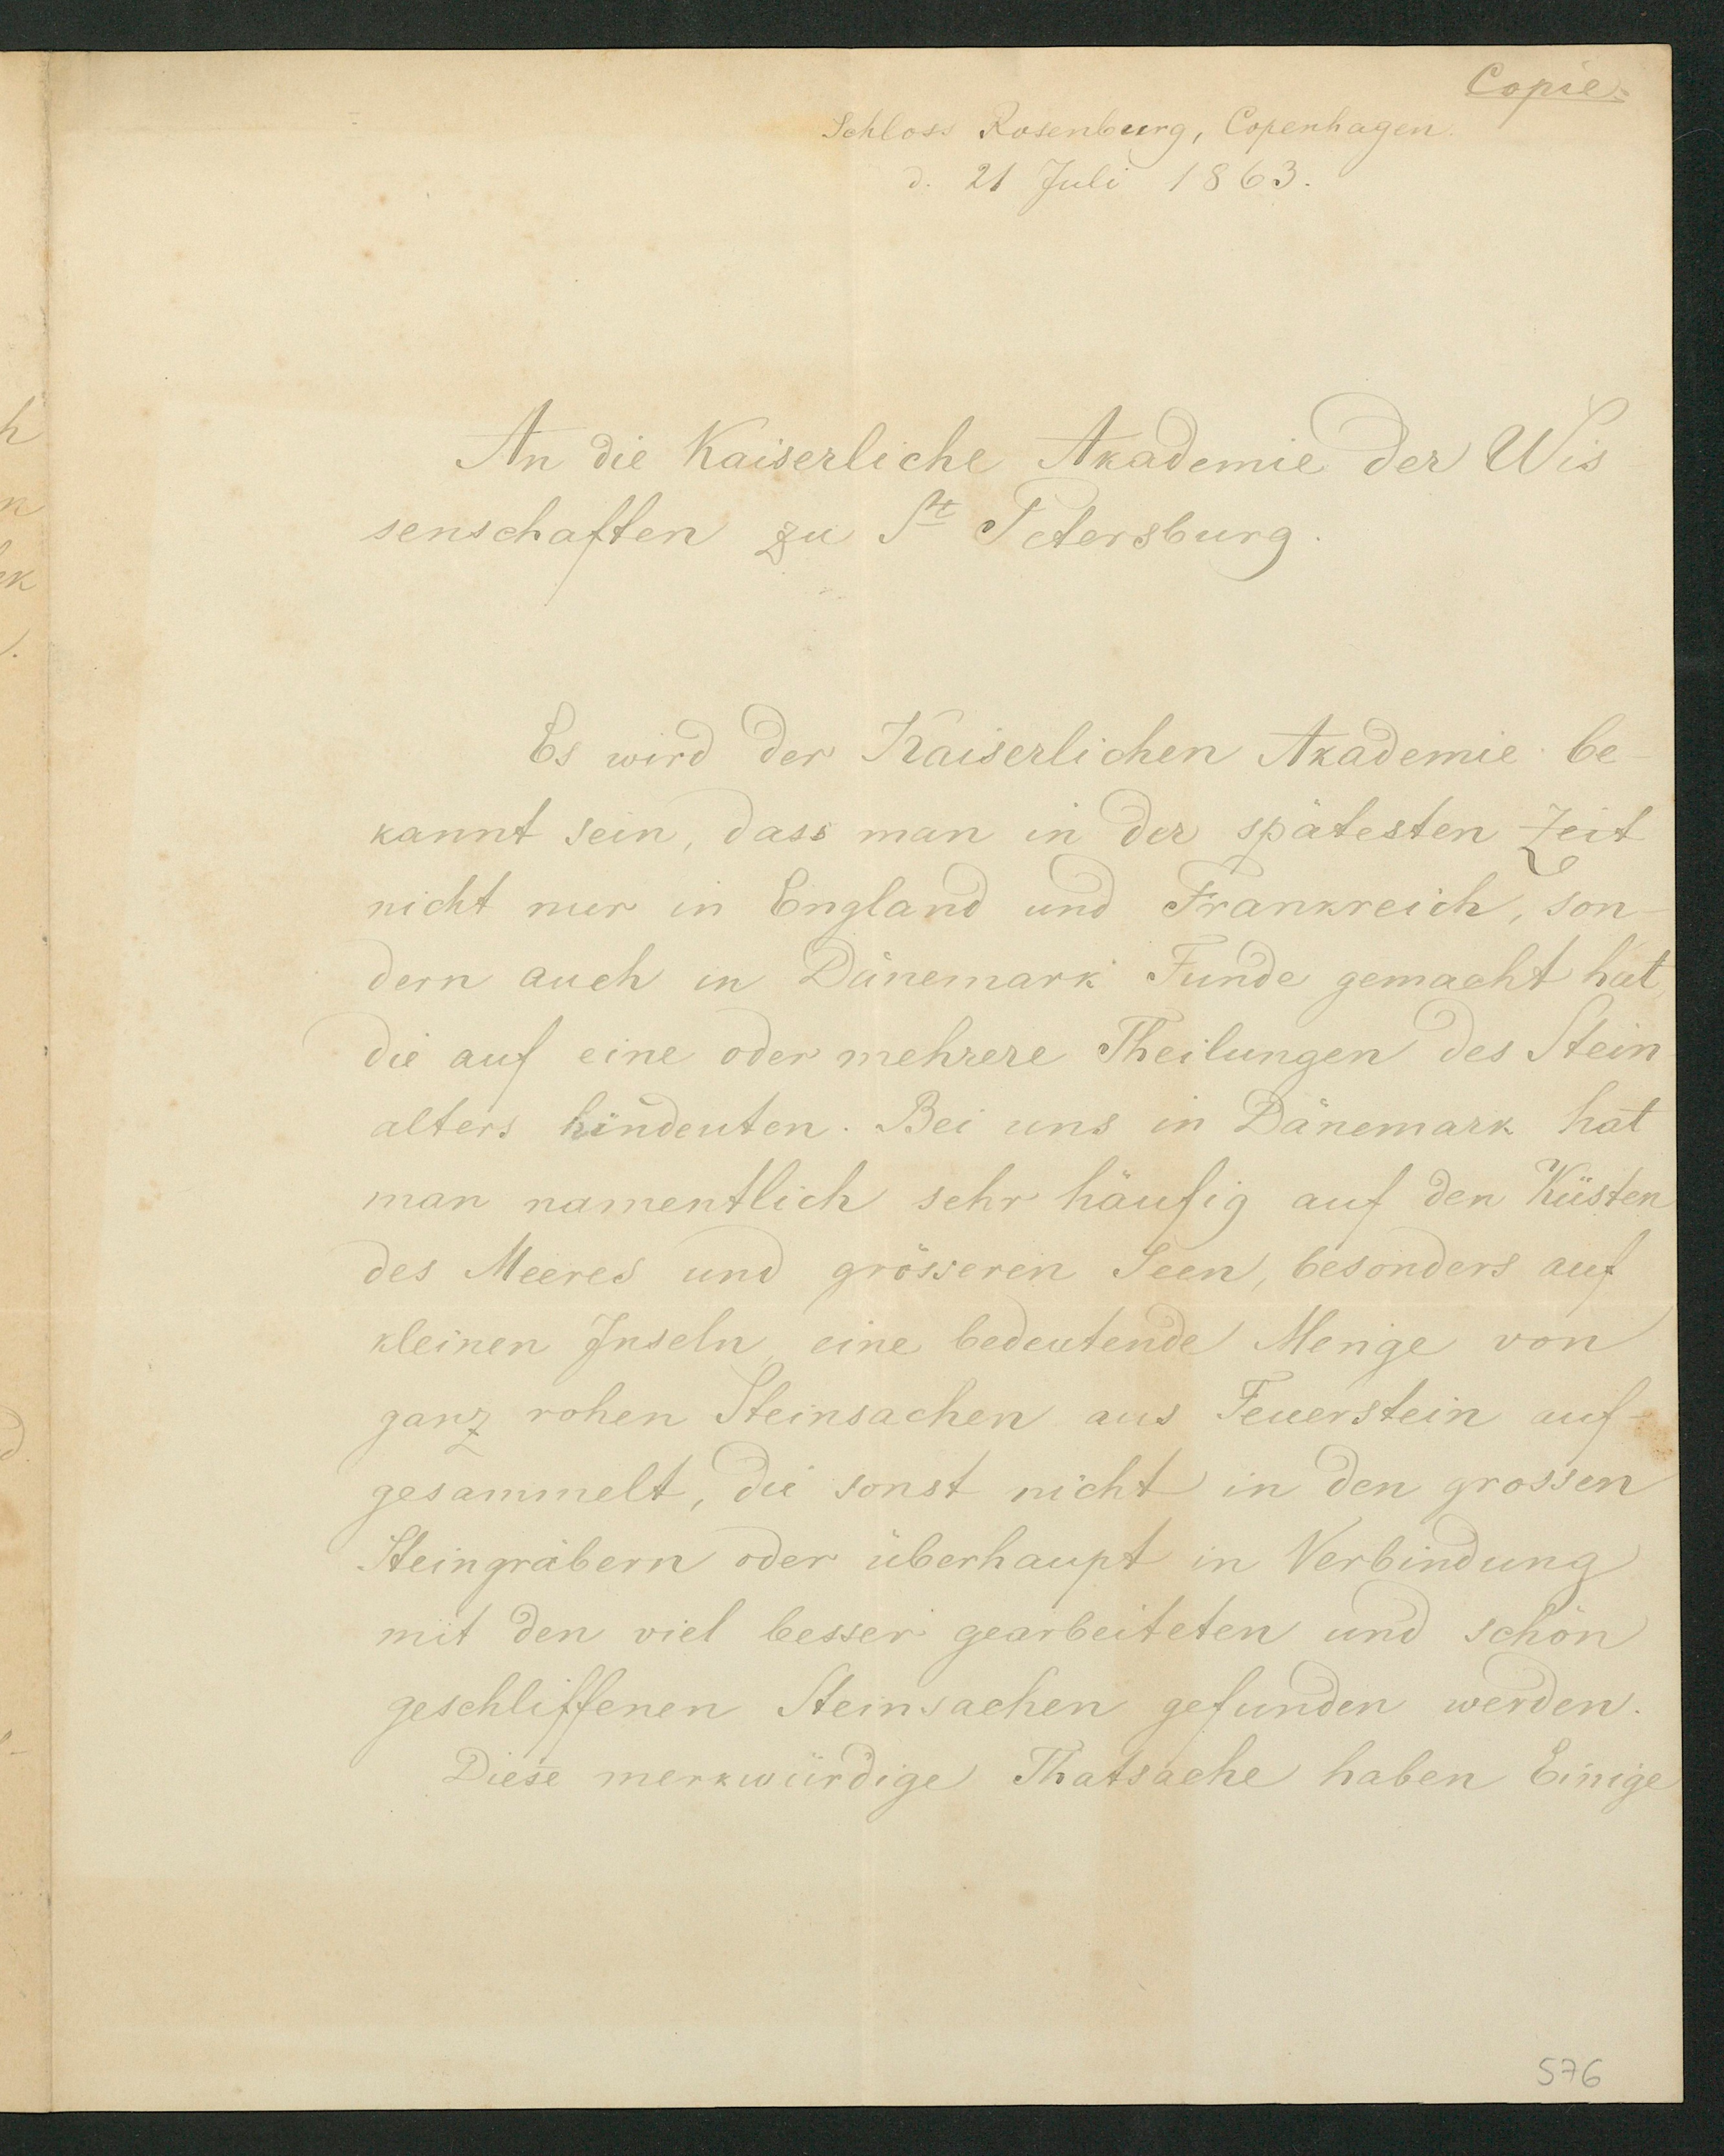 Copie.
Schloss Rosenburg, Copenhagen.
d. 21 Juli 1863.
An die Kaiserliche Akademie der Wis
senschaften zu St Petersburg.
Es wird der Kaiserlichen Akademie be-
kannt sein, dass man in der spätesten Zeit
nicht nur in England und Frankreich, son-
dern auch in Dänemark Funde gemacht hat,
die auf eine oder mehrere Theilungen des Stein
alters hindeuten. Bei uns in Dänemark hat
man namentlich sehr häufig auf den Küsten
des Meeres und grösseren Seen, besonders auf
kleinen Inseln, eine bedeutende Menge von
ganz rohen Steinsachen aus Feuerstein auf-
gesammelt, die sonst nicht in den grossen
Steingräbern oder überhaupt in Verbindung
mit den viel besser gearbeiteten und schön
geschliffenen Steinsachen gefunden werden.
Diese merkwürdige Thatsache haben Einige
576